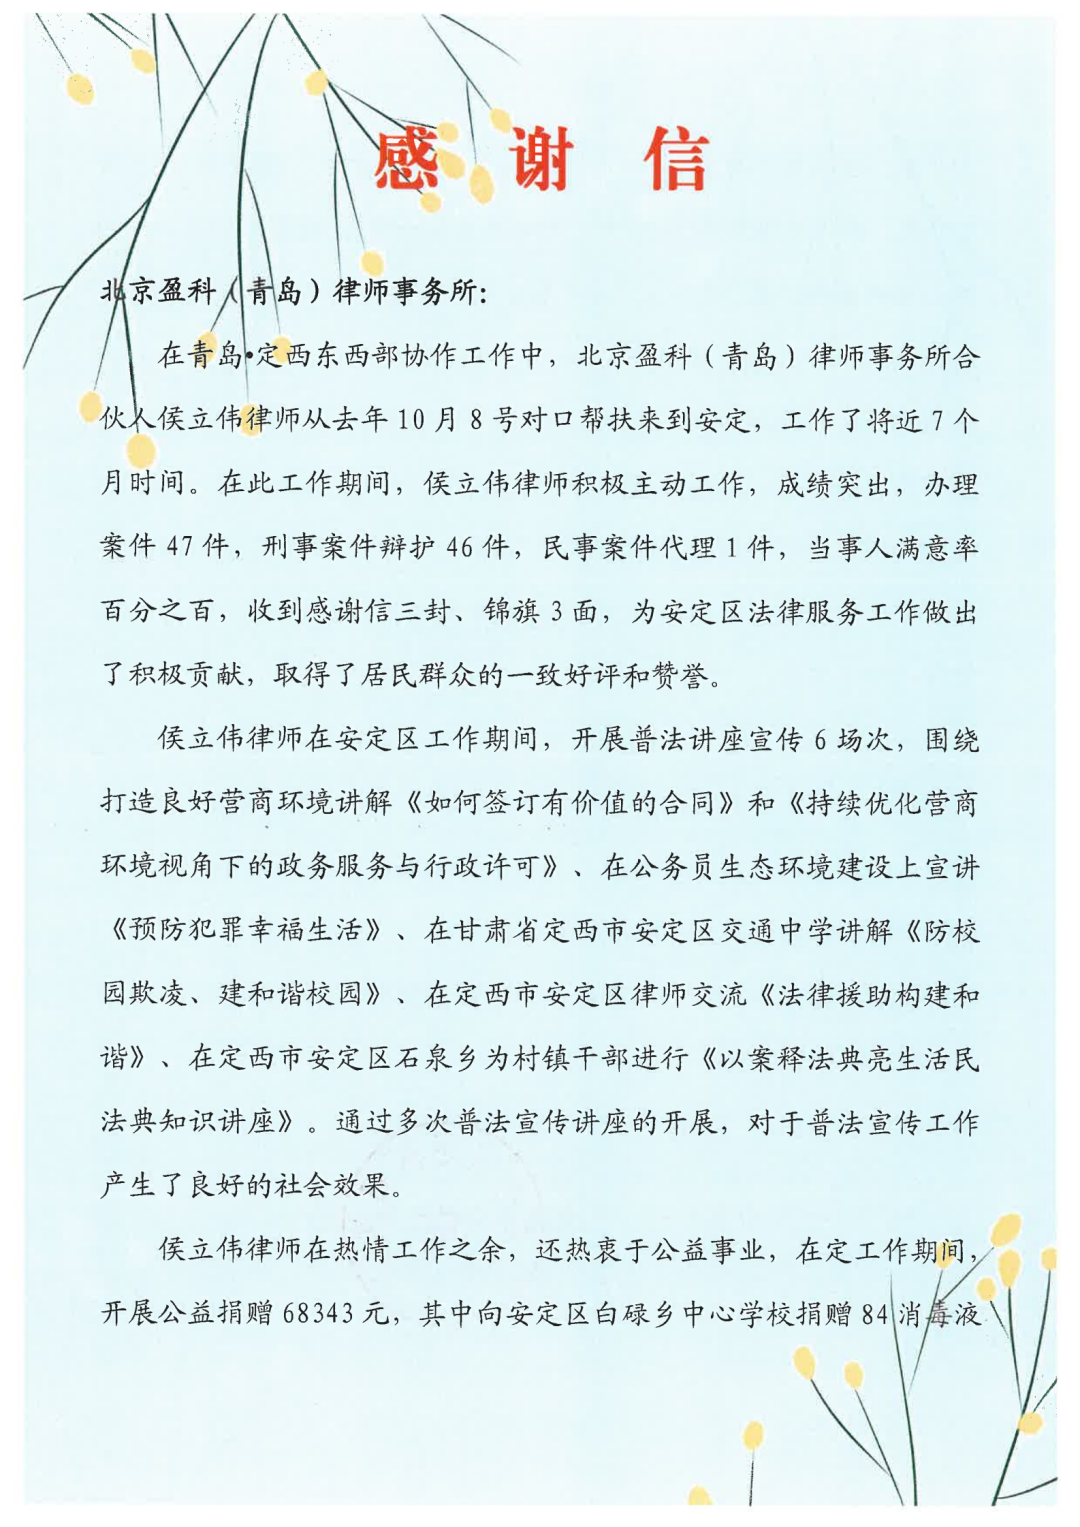 感谢信
北京盈科（青岛）律师事务所：
在青岛•定西东西部协作工作中，北京盈科（青岛）律师事务所合
伙人侯立伟律师从去年10月8号对口帮扶来到安定，工作了将近7个
月时间。在此工作期间，侯立伟律师积极主动工作，成绩突出，办理
案件47件，刑事案件辩护46件，民事案件代理1件，当事人满意率
百分之百，收到感谢信三封、锦旗3面，为安定区法律服务工作做出
了积极贡献，取得了居民群众的一致好评和赞誉。
侯立伟律师在安定区工作期间，开展普法讲座宣传6场次，围绕
打造良好营商环境讲解《如何签订有价值的合同》和《持续优化营商
环境视角下的政务服务与行政许可》、在公务员生态环境建设上宣讲
《预防犯罪幸福生活》、在甘肃省定西市安定区交通中学讲解《防校
园欺凌、建和谐校园》、在定西市安定区律师交流《法律援助构建和
谐》、在定西市安定区石泉乡为村镇干部进行《以案释法典亮生活民
法典知识讲座》。通过多次普法宣传讲座的开展，对于普法宣传工作
产生了良好的社会效果。
侯立伟律师在热情工作之余，还热衷于公益事业，在定工作期间，
开展公益捐赠68343元，其中向安定区白碌乡中心学校捐赠84消毒液